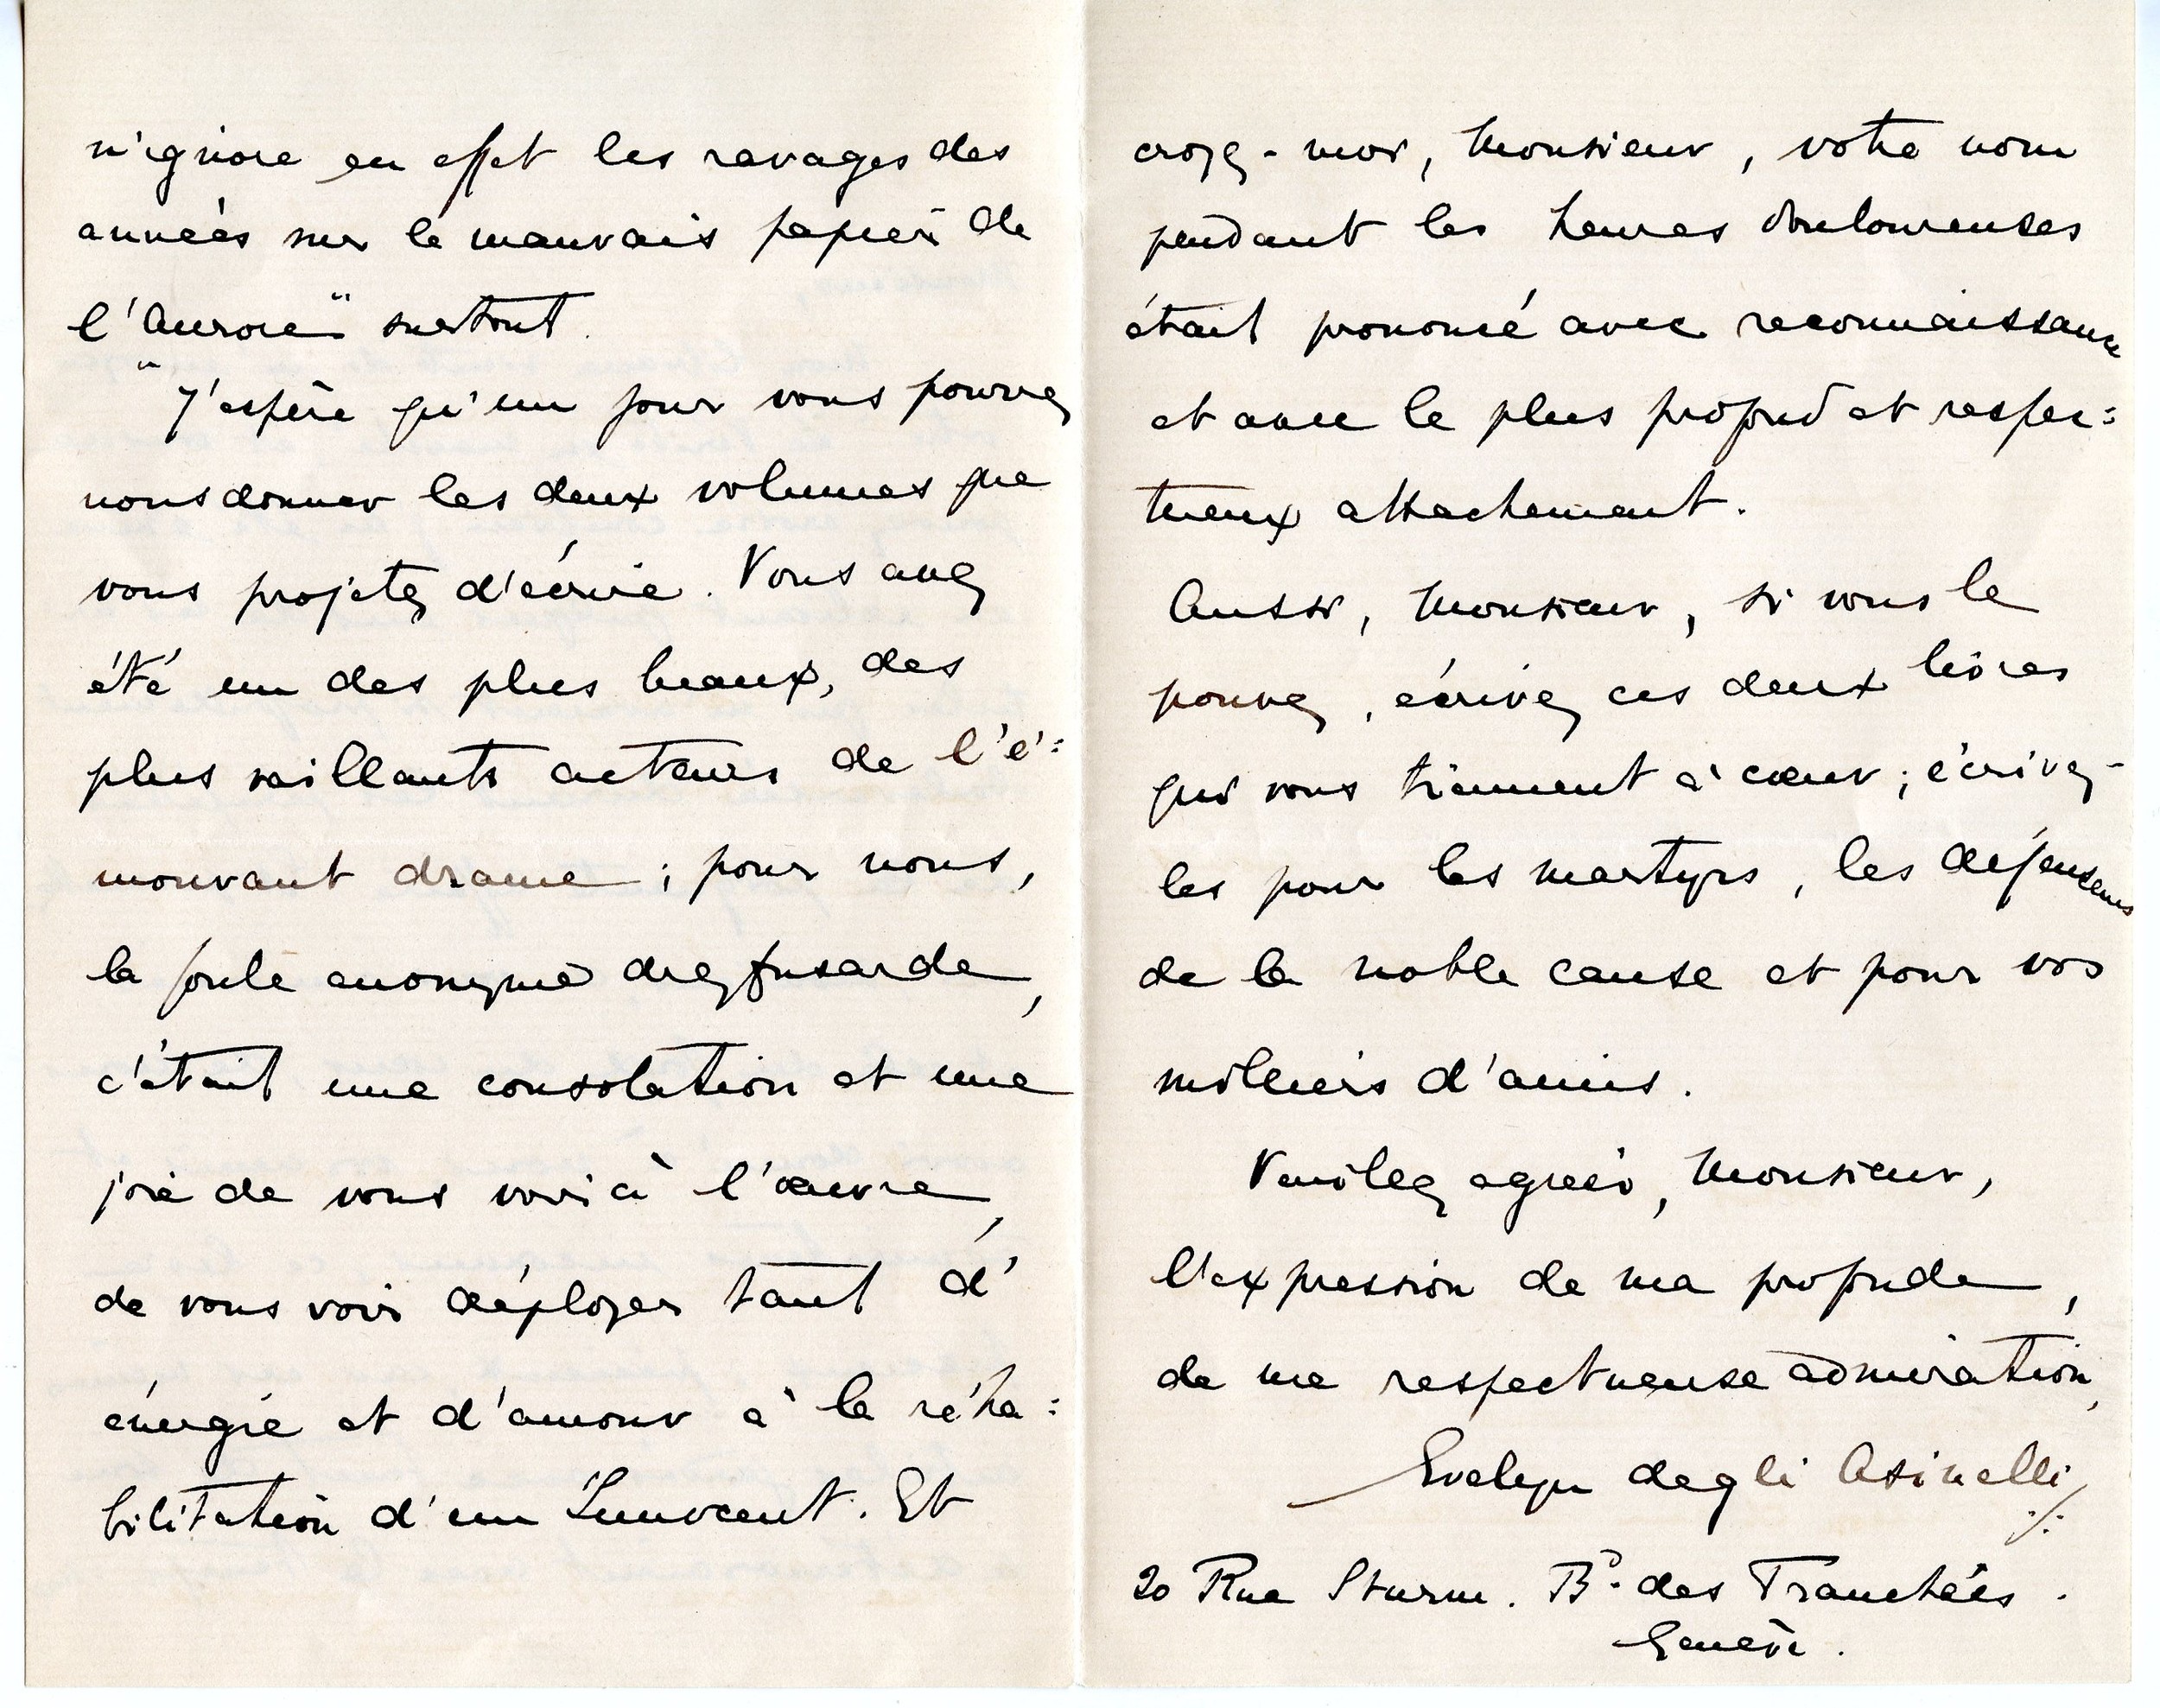 n'ignore en effet les ravages des
années sur le mauvais papier de
l'"Aurore" surtout.
J'espère qu'un jour vous pourrez
nous donner les deux volumes que
vous projetez d'écrire. Vous avez
été un des plus beaux, des
plus vaillants acteurs de l'é=
mouvant drame ; pour nous,
la foule anonyme dreyfusarde,
c'était une consolation et une
joie de vous voir à l'œuvre,
de vous voir déployer tant d'
énergie et d'amour à la réha=
bilitation d'un Innocent. Et
croyez-moi, Monsieur, votre nom
pendant les heures douloureuses
était prononcé avec reconnaissance
et avec le plus profond et respec=
tueux attachement.
Aussi, Monsieur, si vous le
pouvez, écrivez ces deux livres
qui vous tiennent à cœur ; écrivez-
les pour les martyrs, les défenseurs
de la noble cause et pour vos
milliers d'amis.
Veuillez agréer, Monsieur,
l'expression de ma profonde,
de ma respectueuse admiration,
Evelyn degli Asinelli
20 Rue Sturm. Bd. des Tranchées.
Genève.